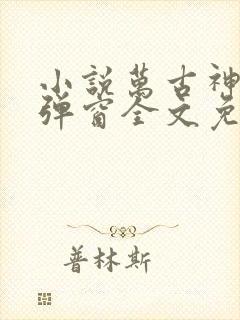 小說萬古神
彈窗全文免
普林斯